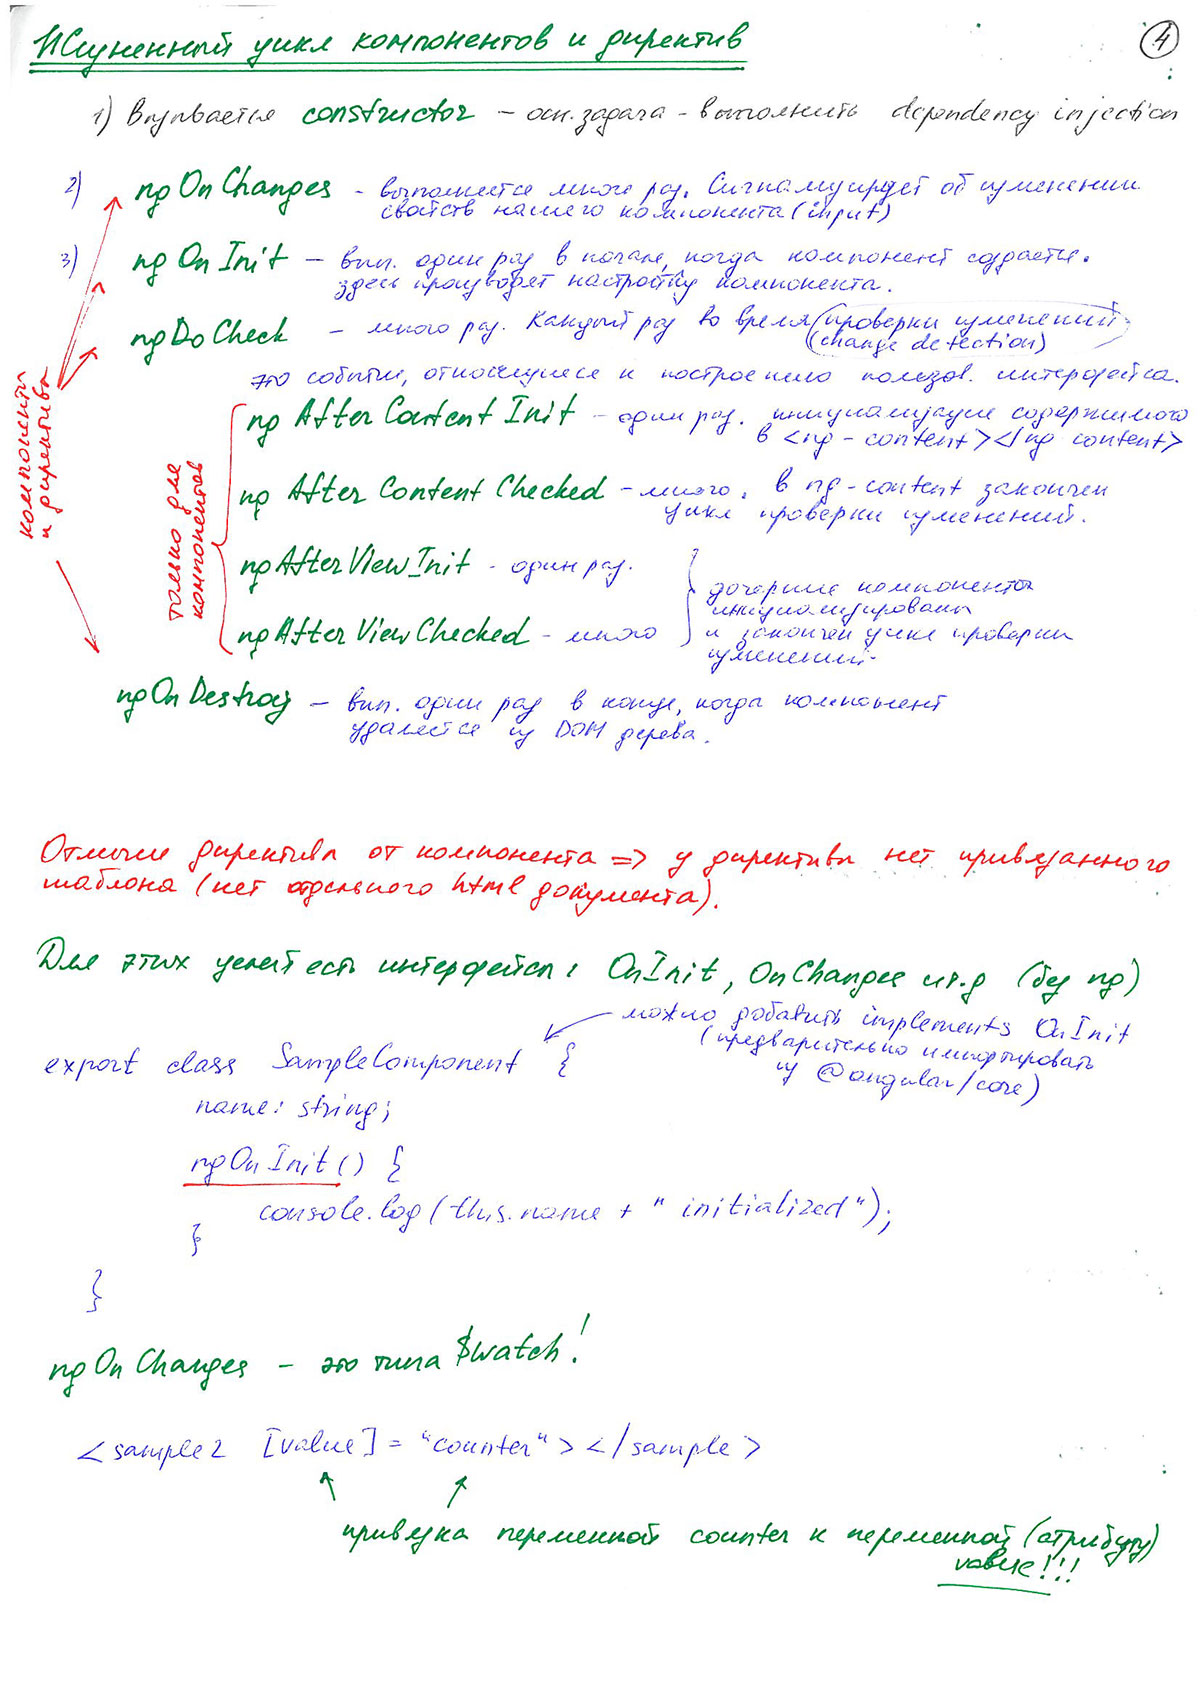 Жизненный цикл компонентов и директив
4
1) Вызывается constructor – осн. задача – выполнить dependency injection
2) ngOnChanges - выполняется много раз. Сигнализирует об изменении
свойств нашего компонента (input)
3) ngOnInit – вып. один раз в начале, когда компонент создается.
здесь производят настройку компонента.
ngDoCheck – много раз. Каждый раз во время (проверки изменений)
(change detection)
это события, относящиеся к построению пользов. интерфейса.
компоненты
и директивы
только для
компонентов
ngAfterContentInit – один раз. инициализация содержимого
в <ng-content></ng content>
ngAfterContentChecked – много. в ng-content закончен
цикл проверки изменений.
ngAfterViewInit - один раз.
ngAfterViewChecked - много
дочерние компоненты
инициализированы
и закончен цикл проверки
изменений.
ngOnDestroy – вып. один раз в конце, когда компонент
удаляется из DOM дерева.
Отличие директивы от компонента => у директивы нет привязанного
шаблона (нет отдельного html документа).
Для этих целей есть интерфейсы: OnInit, OnChanges и т.д (без ng)
можно добавить implements OnInit
(предварительно импортировать
из @angular/core)
export class SampleComponent {
name: string;
ngOnInit() {
console.log(this.name + " initialized");
}
}
ngOnChanges – это типа $watch!
<sample2 [value]="counter"></sample>
привязка переменной counter к переменной (атрибуту)
value!!!